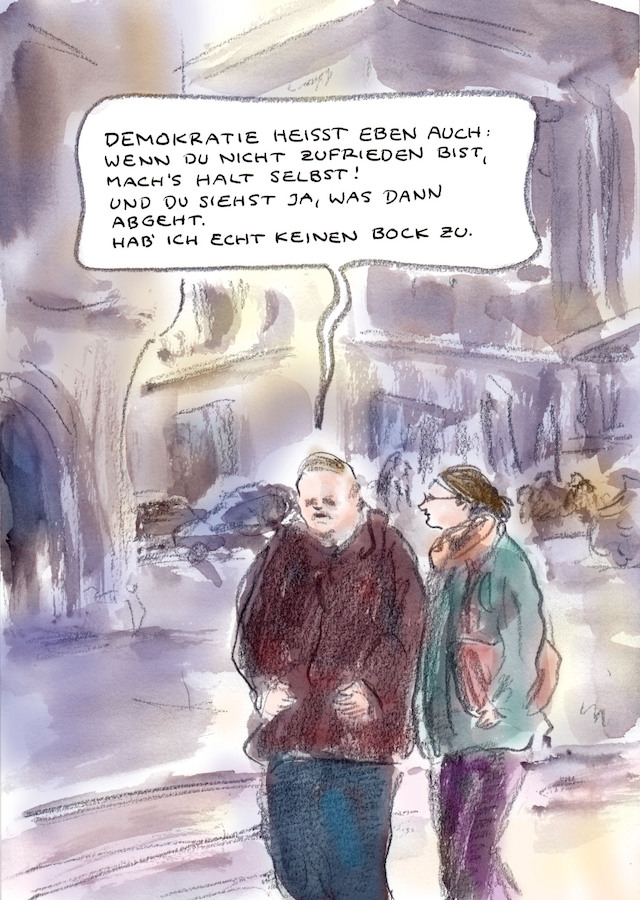 DEMOKRATIE HEISST EBEN AUCH:
WENN DU NICHT ZUFRIEDEN BIST,
MACH'S HALT SELBST!
UND DU SIEHST JA, WAS DANN
ABGEHT.
HAB' ICH ECHT KEINEN BOCK ZU.